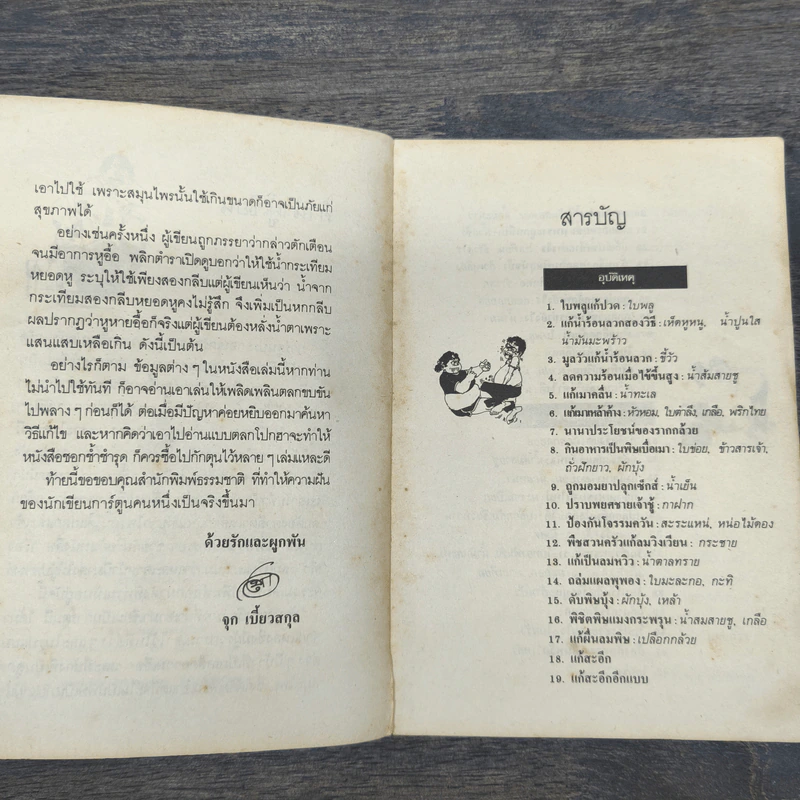 เอาไปใช้ เพราะสมุนไพรนั้นใช้เกินขนาดก็อาจเป็นภัยแก่
สุขภาพได้
อย่างเช่นครั้งหนึ่ง ผู้เขียนถูกภรรยาว่ากล่าวตักเตือน
จนมีอาการหูอื้อ พลิกตำราเปิดดูบอกว่าให้ใช้น้ำกระเทียม
หยอดหู ระบุให้ใช้เพียงสองกลีบแต่ผู้เขียนเห็นว่า น้ำจาก
กระเทียมสองกลีบหยอดหูคงไม่รู้สึก จึงเพิ่มเป็นหกกลีบ
ผลปรากฏว่าหูหายอื้อก็จริงแต่ผู้เขียนต้องหลั่งน้ำตาเพราะ
แสนแสบเหลือเกิน ดังนี้เป็นต้น
อย่างไรก็ตาม ข้อมูลต่างๆในหนังสือเล่มนี้หากท่าน
ไม่นำไปใช้ทันที ก็อาจอ่านเอาเล่นให้เพลิดเพลินตลกขบขัน
ไปพลางๆก่อนก็ได้ ต่อเมื่อมีปัญหาค่อยหยิบออกมาค้นหา
วิธีแก้ไข และหากคิดว่าเอาไปอ่านแบบตลกโปกฮาจะทำให้
หนังสือชอกช้ำชำรุด ก็ควรซื้อไปกักตุนไว้หลายๆเล่มแหละดี
ท้ายนี้ขอขอบคุณสำนักพิมพ์ธรรมชาติ ที่ทำให้ความฝัน
ของนักเขียนการ์ตูนคนหนึ่งเป็นจริงขึ้นมา
ด้วยรักและผูกพัน
จุก เบี้ยวสกุล
สารบัญ
อุบัติเหตุ
1. ใบพลูแก้ปวด : ใบพลู
2. แก้น้ำร้อนลวกสองวิธี : เห็ดหูหนู, น้ำปูนใส
น้ำมันมะพร้าว
3. มูลวัวแก้น้ำร้อนลวก : ขี้วัว
4. ลดความร้อนเมื่อไข้ขึ้นสูง : น้ำส้มสายชู
5. แก้เมาคลื่น : น้ำทะเล
6. แก้เมาเหล้าค้าง : หัวหอม, ใบตำลึง, เกลือ, พริกไทย
7. นานาประโยชน์ของรากกล้วย
8. กินอาหารเป็นพิษเบื่อเมา : ใบข่อย, ข้าวสารเจ้า,
ถั่วฝักยาว, ผักบุ้ง
9. ถูกมอมยาปลุกเซ็กส์ : น้ำเย็น
10. ปราบพยศชายเจ้าชู้ : กาฝาก
11. ป้องกันโจรรมควัน : สะระแหน่, หน่อไม้ดอง
12. พืชสวนครัวแก้ลมวิงเวียน : กระชาย
13. แก้เป็นลมหิว : น้ำตาลทราย
14. ถล่มแผลพุพอง : ใบมะละกอ, กะทิ
15. ดับพิษบุ้ง : ผักบุ้ง, เหล้า
16. พิชิตพิษแมงกะพรุน : น้ำสมสายชู, เกลือ
17. แก้ผื่นลมพิษ : เปลือกกล้วย
18. แก้สะอึก
19. แก้สะอึกอีกแบบ